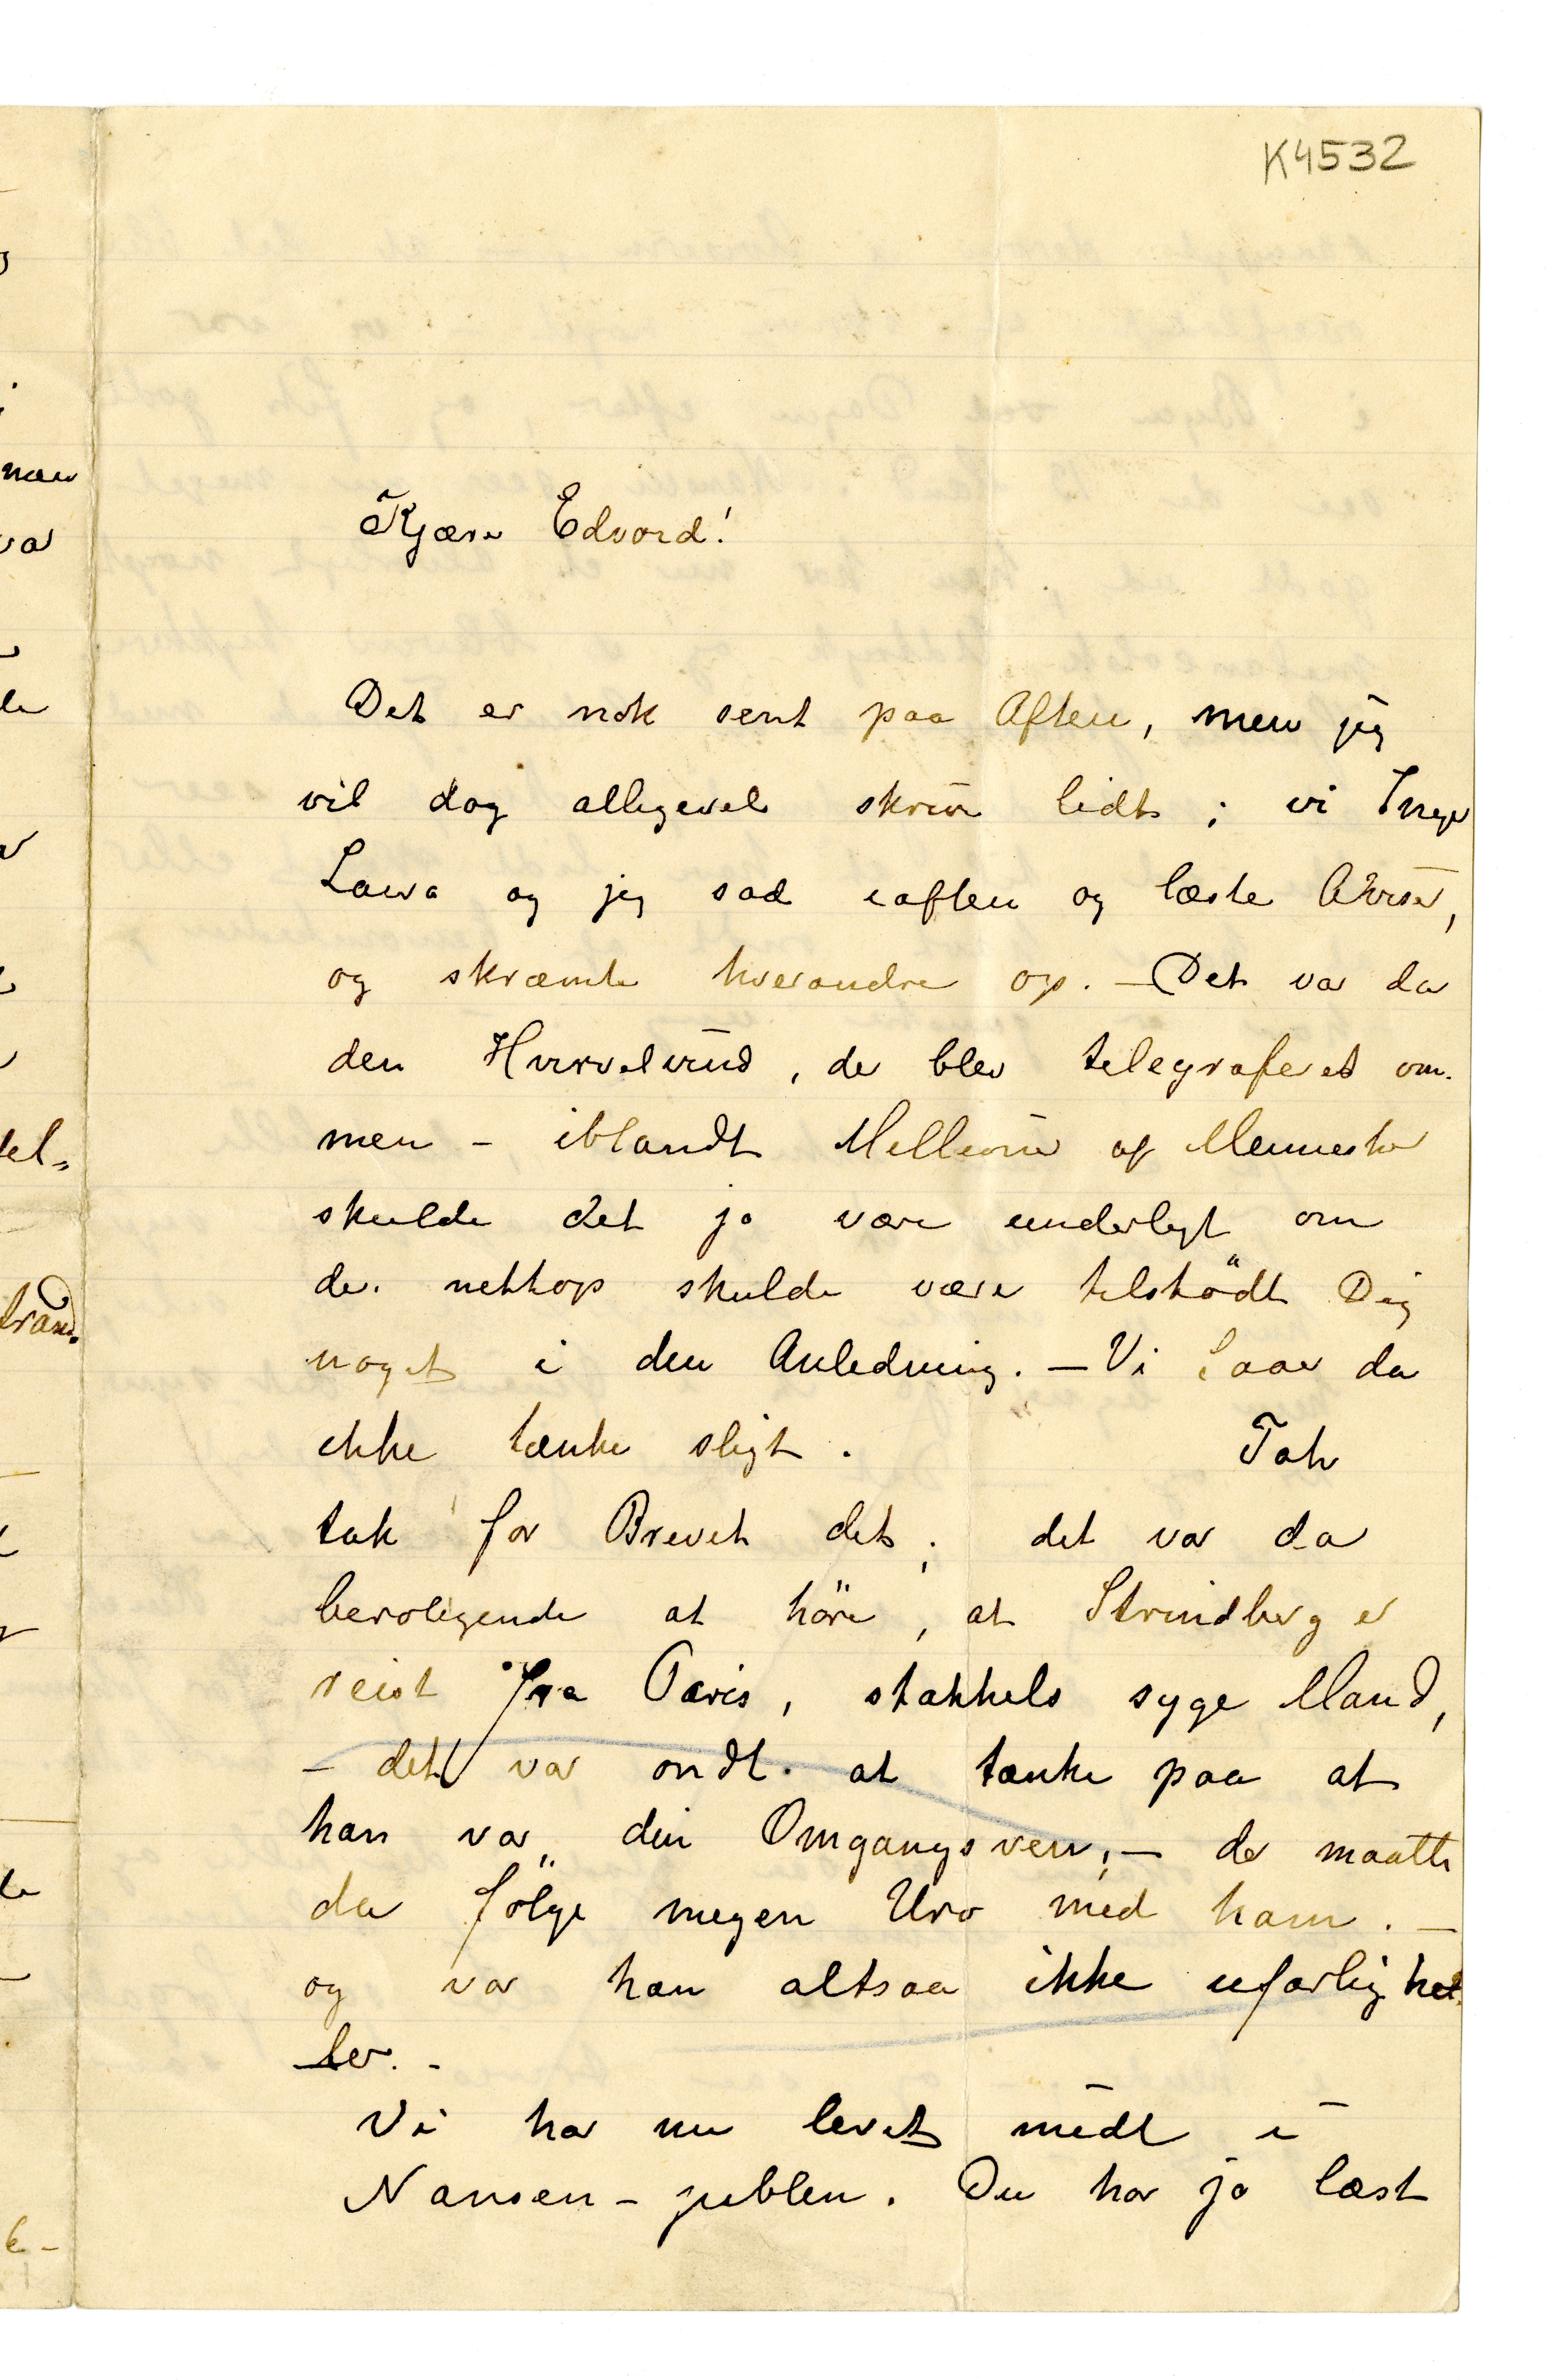 K4532
Kjære Edvard!
Det er nok sent paa Aften, men jeg
vil dog alligevel skrive lidt; vi Inger
Laura og jeg sad iaften og læste Aviser,
og skræmte hverandre op. – Det var da
den Hvirvelvind, der blev telegraferet om.
men – iblandt Millioner af Mennesker
skulde det jo være underligt om
der nettop skulde være tilstödt Dig
noget i den Anledning. – Vi faar da
ikke tænke sligt. Tak
tak for Brevet dit; det var da
beroligende at höre, at Strindberg er
reist fra Paris, stakkels syge Mand,
– det var ondt at tænke paa at
han var din Omgangsven, – der maatte
da fölge megen Uro med ham. –
og var han altsaa ikke ufarlig hel
ler. –
Vi har nu levet midt i
Nansen-jublen. Du har jo læst